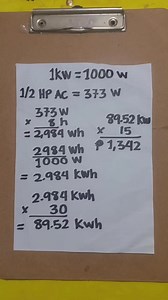 1kW = 1000 W
1/2 HP AC = 373 W
373 W
x 8 h
= 2,984 Wh
2984 Wh
1000 W
= 2.984 kWh
2.984 kWh
x 30
= 89.52 kWh
89.52 kW
x 15
₱ 1,342